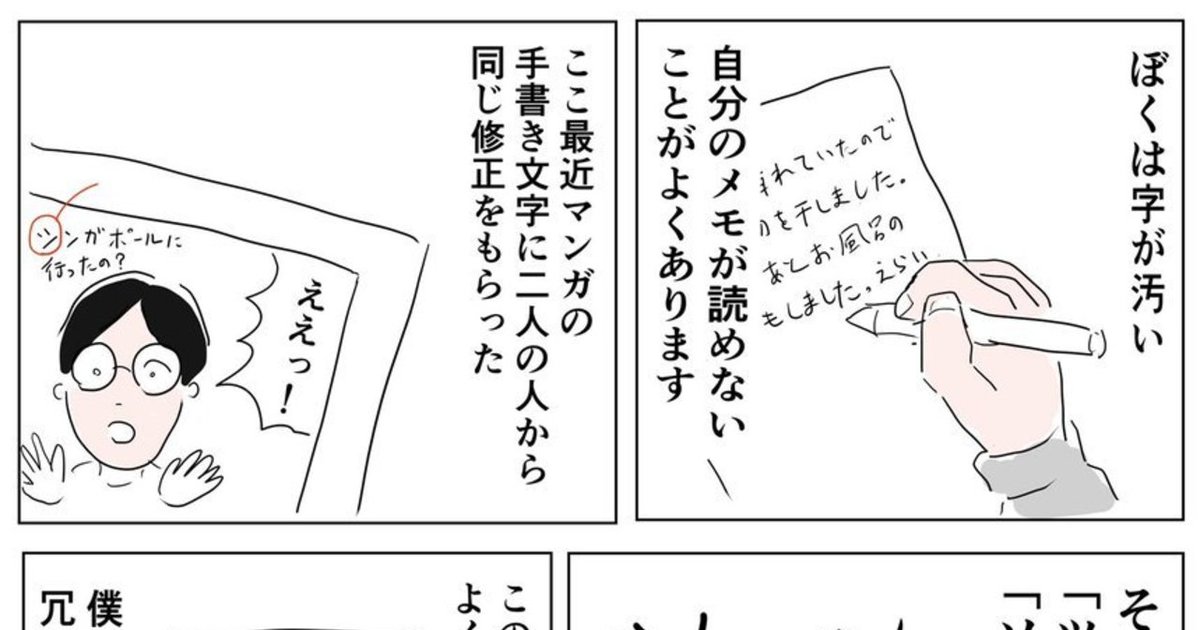 ぼくは字が汚い
れていたので
を干しました。
あとお風呂の
もしました。えらい
自分のメモが読めない
ことがよくあります
ここ最近マンガの
手書き文字に二人の人から
同じ修正をもらった
ええっ！
ツンガポールに
行ったの？
そ
「ツ
「
この
よく
僕
冗